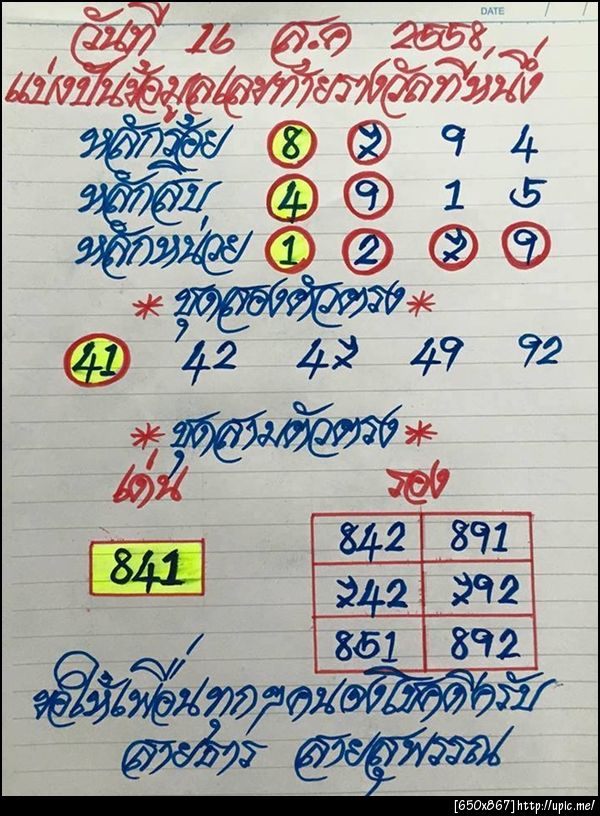 DATE / /
วันที่ 16 ส.ค 2558
แบ่งปันข้อมูลเลขท้ายรางวัลที่หนึ่ง
หลักร้อย 8 7 9 4
หลักสิบ 4 9 1 5
หลักหน่วย 1 2 7 9
* ชุดสองตัวตรง *
41 42 47 49 92
* ชุดสามตัวตรง *
เด่น รอง
841
842 891
742 792
851 892
ขอให้เพื่อนทุกๆคนจงโชคดีครับ
สายธาร สายสุพรรณ
[650x867]http://upic.me/